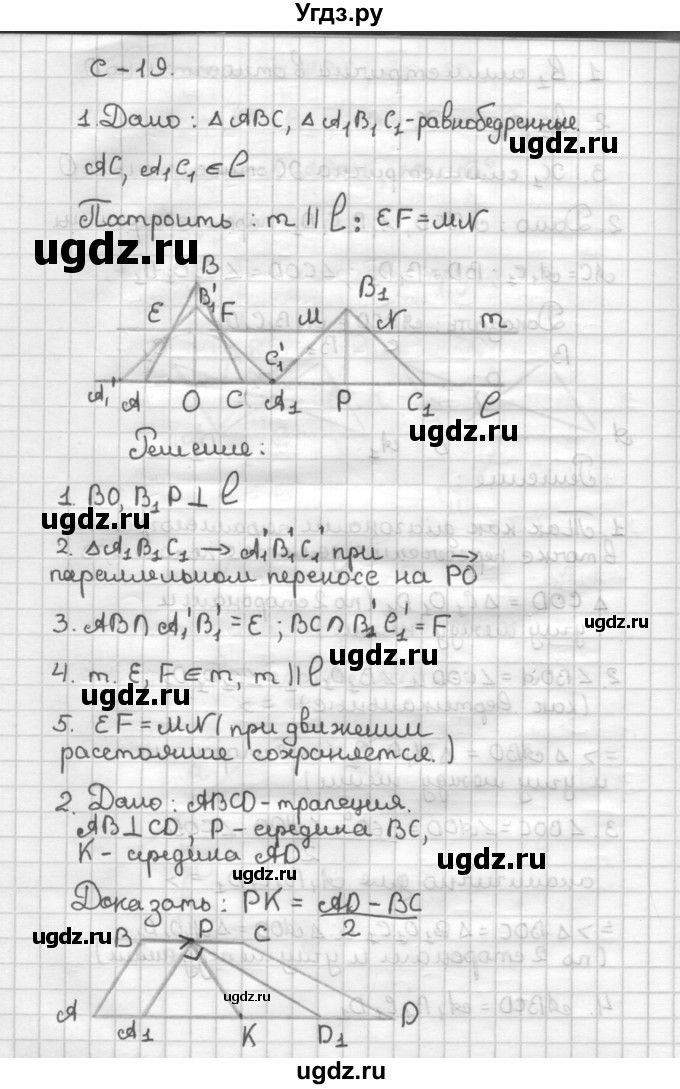 Угдз.ру
С-19.
1. Дано: △ ABC, △ A₁B₁C₁-равнобедренные.
ugdz.ru
AC, A₁C₁ ∈ l
Построить: m || l: EF = MN
ugdz.ru
ugdz.ru
B
B₁' F
E
M
B₁
N
m
C₁'
A₁' A O C A₁ P C₁ l
ugdz.ru
Решение:
1. BO, B₁P ⊥ l
ugdz.ru
2. △ A₁B₁C₁ → A₁'B₁'C₁' при
параллельном переносе на PO
3. AB ∩ A₁'B₁' = E ; BC ∩ B₁'C₁' = F
ugdz.ru
ugdz.ru
4. m. E, F ∈ m, m || l
ugdz.ru
5. EF = MN (при движении
расстояние сохраняется.)
2. Дано: ABCD-трапеция.
AB ⊥ CD, P - середина BC,
K - середина AD
ugdz.ru
ugdz.ru
Доказать: PK = AD - BC
2
ugdz.ru
B P C
ugdz.ru
ugdz.ru
A A₁ K D₁ D
ugdz.ru